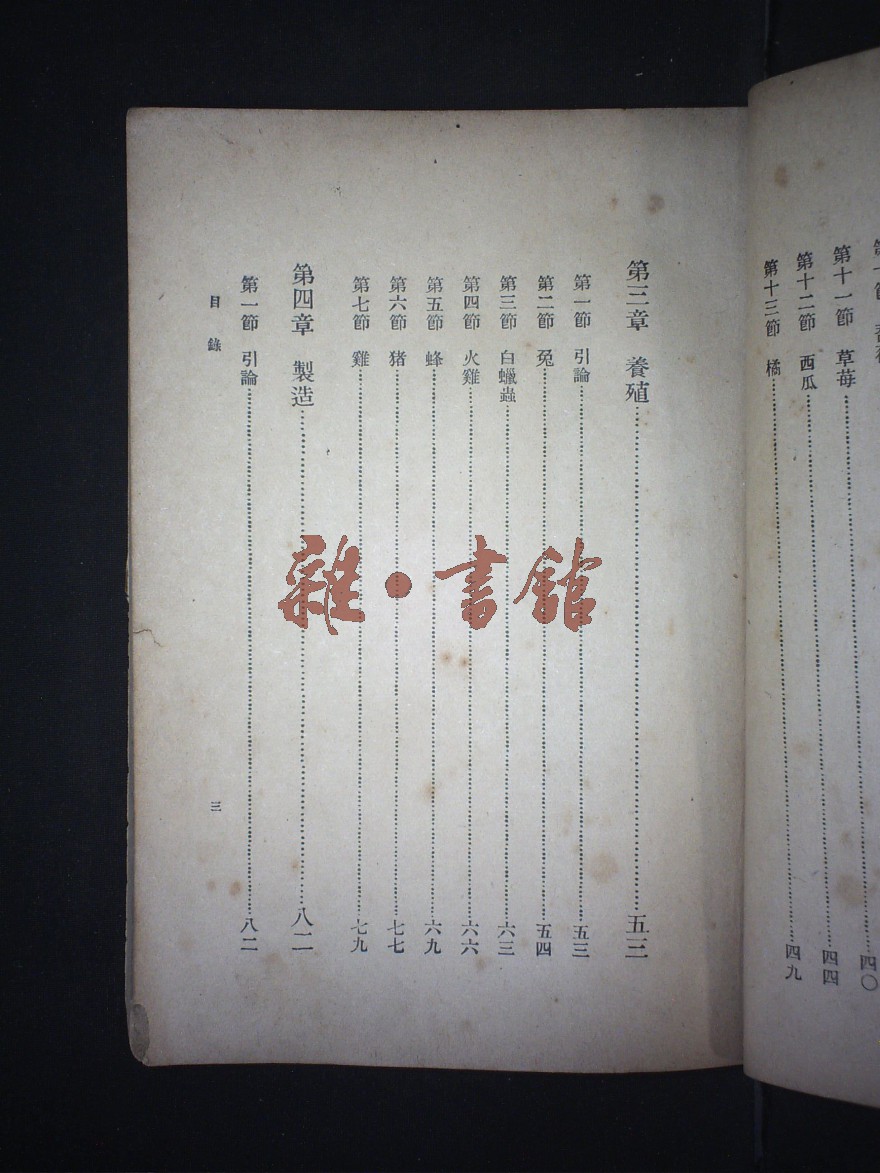 第十一節　草苺……四四
第十二節　西瓜……四九
第十三節　橘
第三章　養殖……五三
第一節　引論……五三
第二節　兔……五四
第三節　白蠟蟲……六三
第四節　火雞……六六
第五節　蜂……六九
第六節　猪……七七
第七節　雞……七九
第四章　製造……八二
第一節　引論……八二
目錄
三
雜·書館